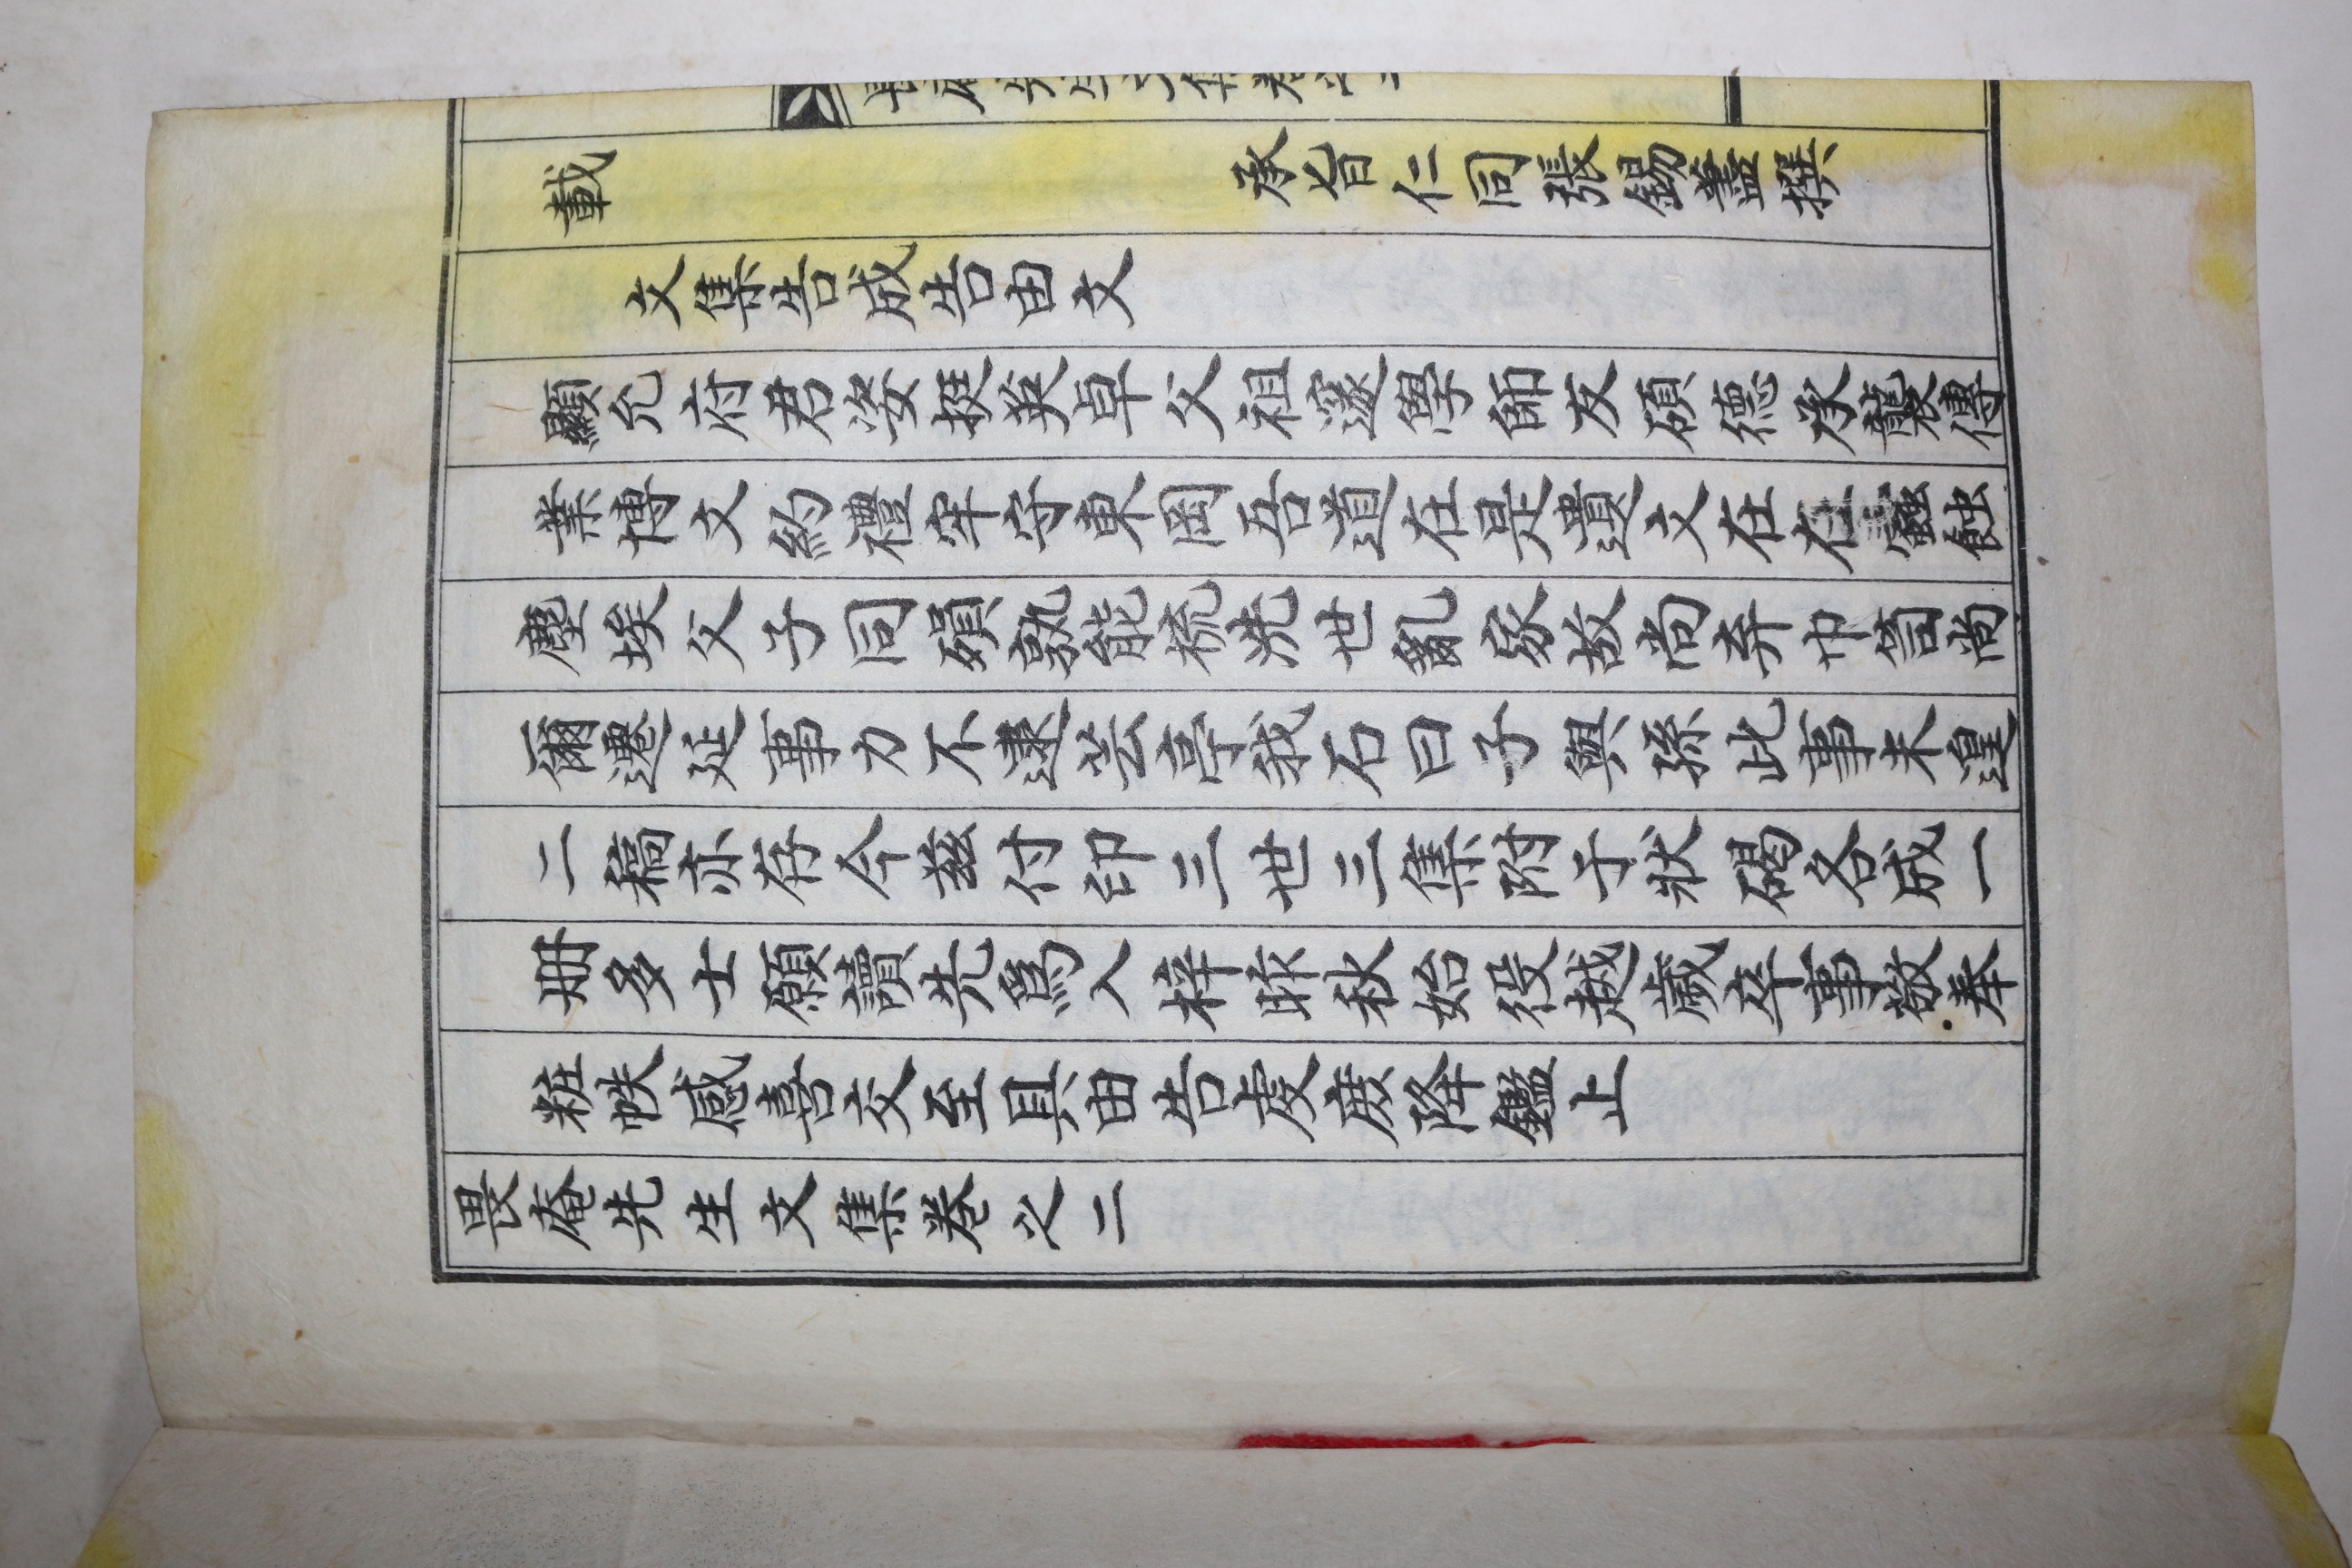 畏庵先生文集卷之二
載
承旨仁同張錫藎撰
文集告成告由文
顯允府君姿挺英卓父祖邃學師友碩德承襲傳
業博文約禮牢守東岡吾道在是遺文在在蠹蝕
塵埃父子同殞孰能梳洗世亂家故尚弃巾笥尚
爾遷延事力不逮芸亭我石曰子與孫此事未遑
二稿亦存今玆付印三世三集附于狀碣各成一
册多士願讀先爲入梓昨秋始役越歲卒事敬奉
粧帙感喜交至具由告虔庶降鑑止
畏庵先生文集卷之二